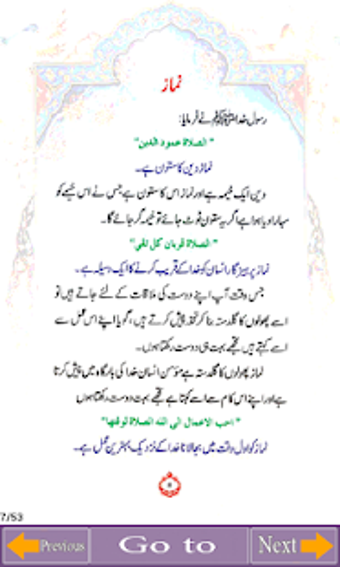 نماز
رسول خدا ﷺ نے فرمایا:
"الصلاة عمود الدین"
نماز دین کا ستون ہے۔
دین ایک خیمہ ہے اور نماز اس کا ستون ہے جس نے اس خیمے کو
سہارا دیا ہوا ہے اگر یہ ستون ٹوٹ جائے تو خیمہ گر جائے گا۔
"الصلاة قربان کل تقی"
نماز پرہیز گار انسان کو خدا کے قریب کرنے کا ایک وسیلہ ہے۔
جس وقت آپ اپنے دوست کی ملاقات کے لئے جاتے ہیں تو
اسے پھولوں کا گلدستہ بنا کر تحفہ پیش کرتے ہیں، گویا اپنے اس عمل سے
اسے کہتے ہیں تجھے بہت ہی دوست رکھتا ہوں۔
نماز پھولوں کا گلدستہ ہے مؤمن انسان خدا کی بارگاہ میں پیش کرتا
ہے اور اپنے اس کام سے اسے کہتا ہے تجھے بہت دوست رکھتا ہوں
"احب الاعمال الی الله الصلاة لوقتها"
نماز کو اول وقت میں بجا لانا خدا کے نزدیک بہترین عمل ہے۔
7/53
Previous Go to Next